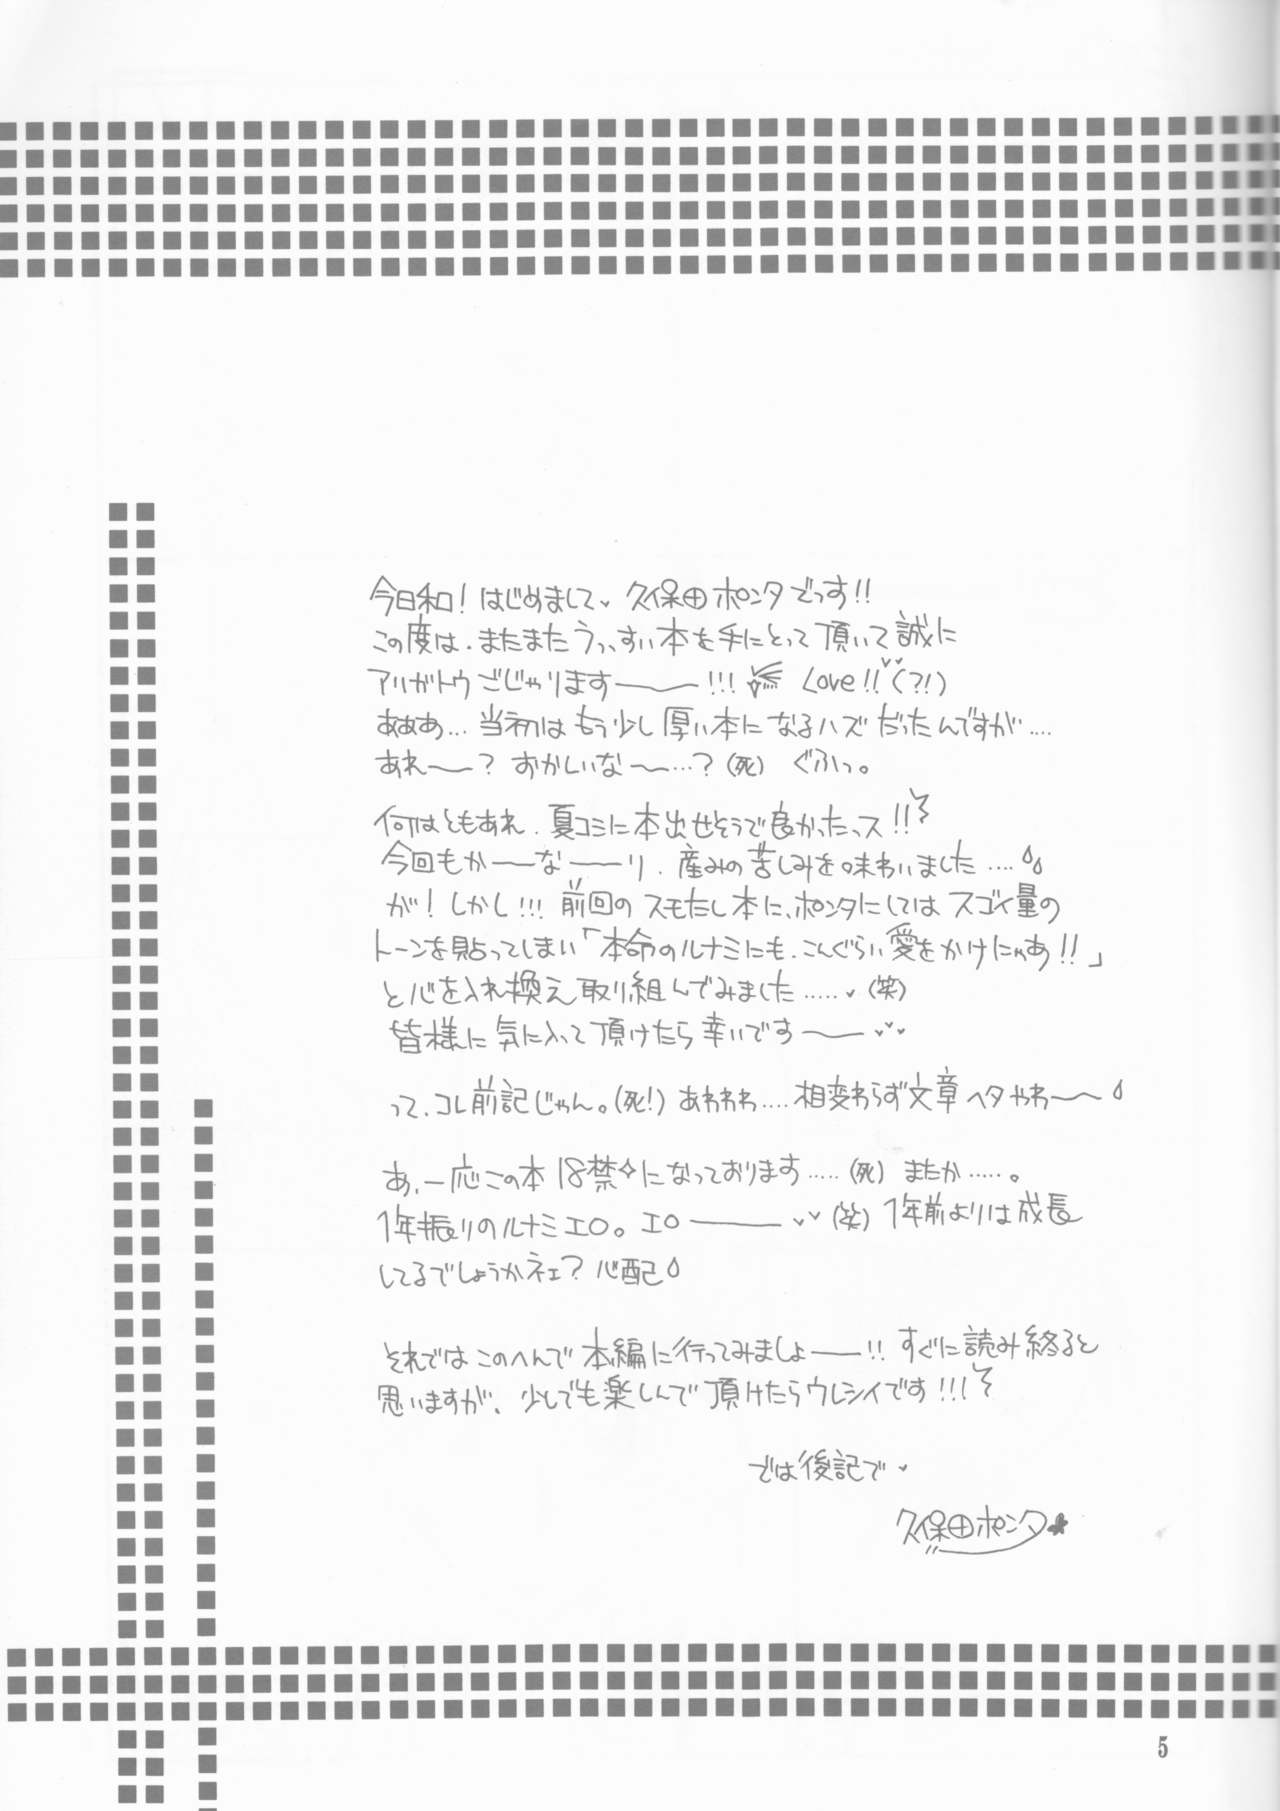 今日和！はじめまして♥久保田ポンタでっす!!
この度は、またまたうっすい本を手にとって頂いて誠に
アリガトウごじゃりますーー!!! Love!!♥♥(?!)
あああ…当初はもう少し厚い本になるハズだったんですが….
あれーー？おかしいなー…？(死) ぐふっ。
何はともあれ、夏コミに本出せそうで良かったっス!!
今回もかーーなーーり、産みの苦しみを味わいました….
が！しかし!!!前回のスモたし本に、ポンタにしてはスゴイ量の
トーンを貼ってしまい「本命のルナミにも、こんぐらい愛をかけにゃあ!!」
と心を入れ換え取り組んでみました…..♥(笑)
皆様に気に入って頂けたら幸いですーー♥♥♥
って、コレ前記じゃん。(死!) あわわわ….相変わらず文章ヘタやわーー
あ、一応この本18禁✧になっております…..(死) またか…..。
1年振りのルナミエロ。エローーー♥♥(笑) 1年前よりは成長
してるでしょうかネェ？心配
それではこのへんで本編に行ってみましょーー!!すぐに読み終ると
思いますが、少しでも楽しんで頂けたらウレシイです!!!
では後記で♥
久保田ポンタ
5